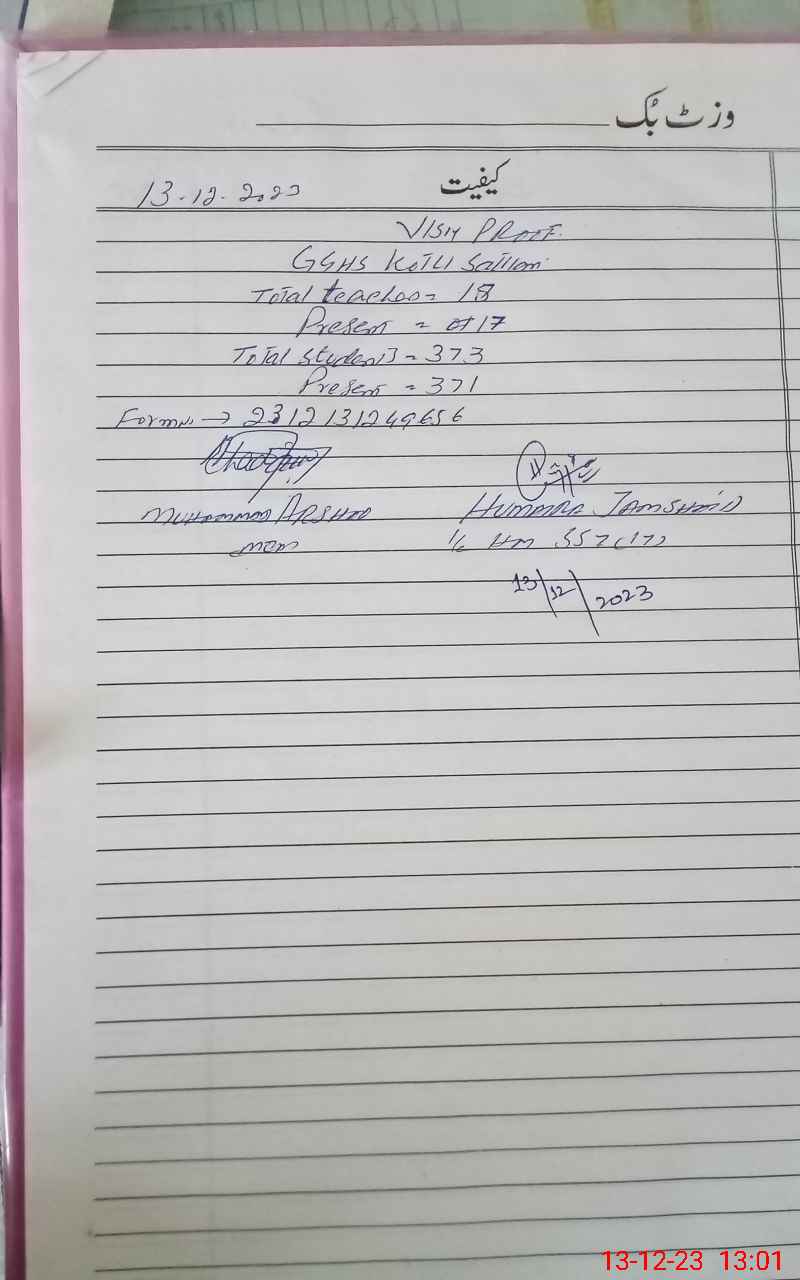 وزٹ بُک
کیفیت
13-12-2023
VISIT PROOF.
GGHS Kotli
Total teacher = 18
Present = 17
Total students = 373
Present = 371
Form No. → 2312131249656
MUHAMMAD ARSHAD
Hummara Jamshaid
I/C HM 557(17)
13/12/2023
13-12-23 13:01